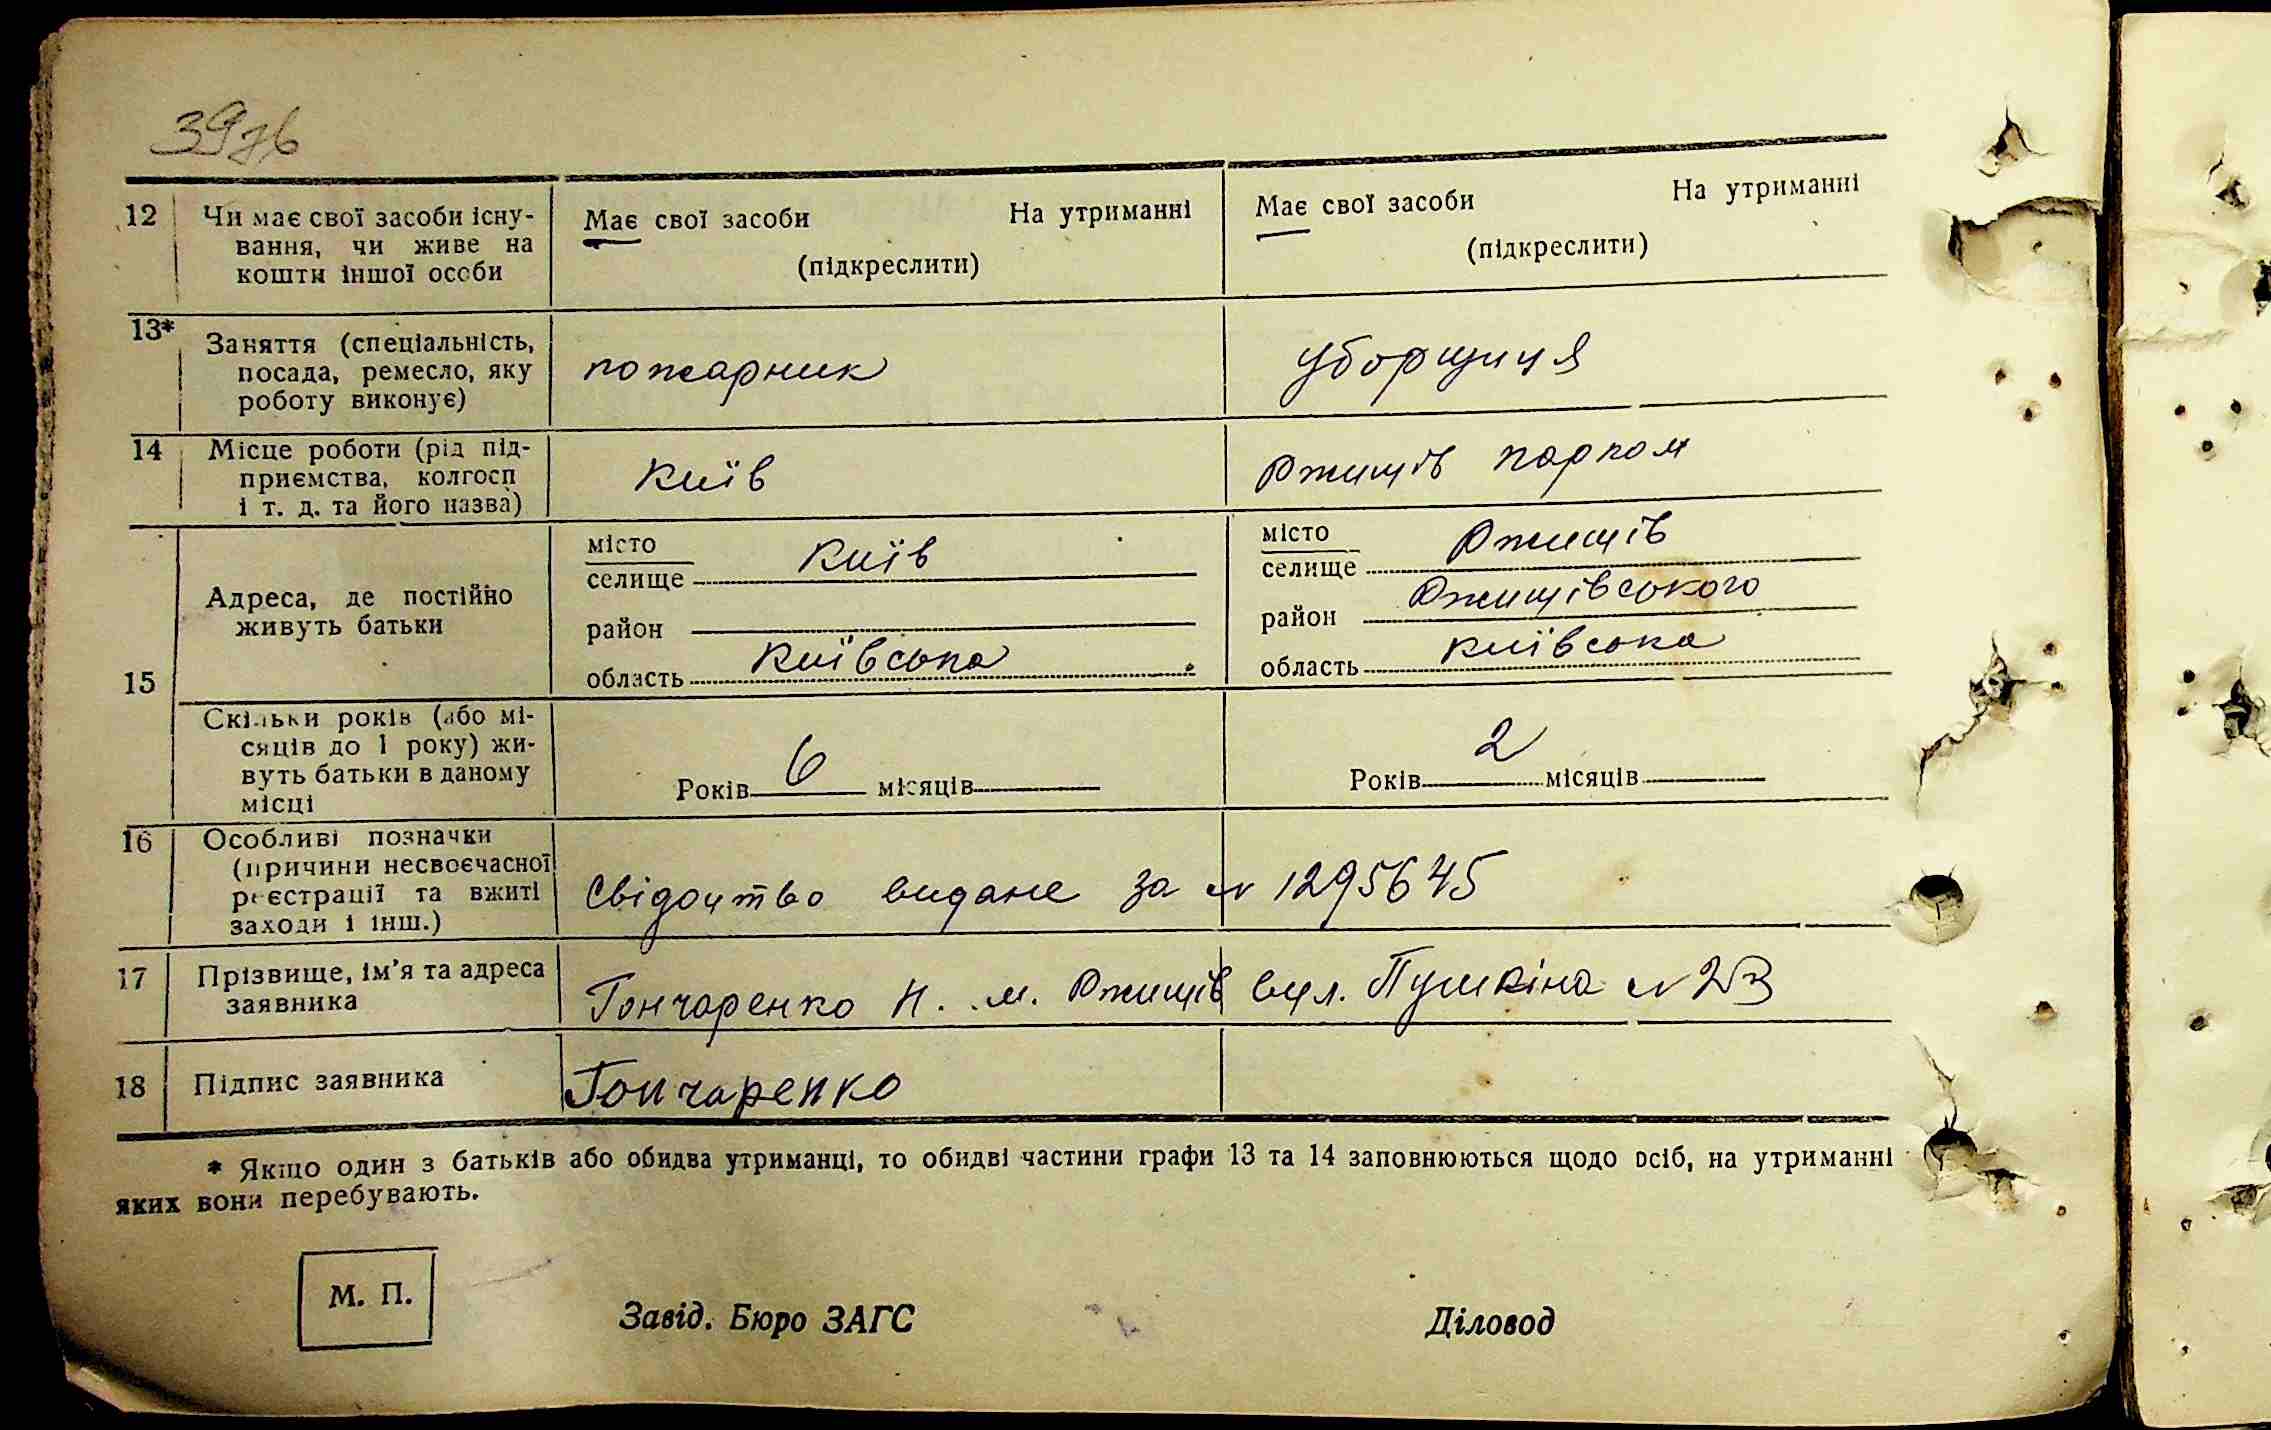 12 Чи має свої засоби існу-
вання, чи живе на
кошти іншої особи
Має свої засоби На утриманні
(підкреслити)
Має свої засоби На утриманні
(підкреслити)
13* Заняття (спеціальність,
посада, ремесло, яку
роботу виконує)
пожарник
уборщиця
14 Місце роботи (рід під-
приємства, колгосп
і т. д. та його назва)
Київ
Ржищів парком
15 Адреса, де постійно
живуть батьки
місто
селище Київ
район
область Київська
місто
селище Ржищів
район Ржищівського
область Київська
Скільки років (або мі-
сяців до 1 року) жи-
вуть батьки в даному
місці
Років 6 місяців
Років 2 місяців
16 Особливі позначки
(причини несвоєчасної
реєстрації та вжиті
заходи і інш.)
Свідоцтво видане за N 1295645
17 Прізвище, ім'я та адреса
заявника
Гончаренко Н. м. Ржищів вул. Пушкіна N 23
18 Підпис заявника
Гончаренко
* Якщо один з батьків або обидва утриманці, то обидві частини графи 13 та 14 заповнюються щодо осіб, на утриманні
яких вони перебувають.
М. П.
Завід. Бюро ЗАГС
Діловод